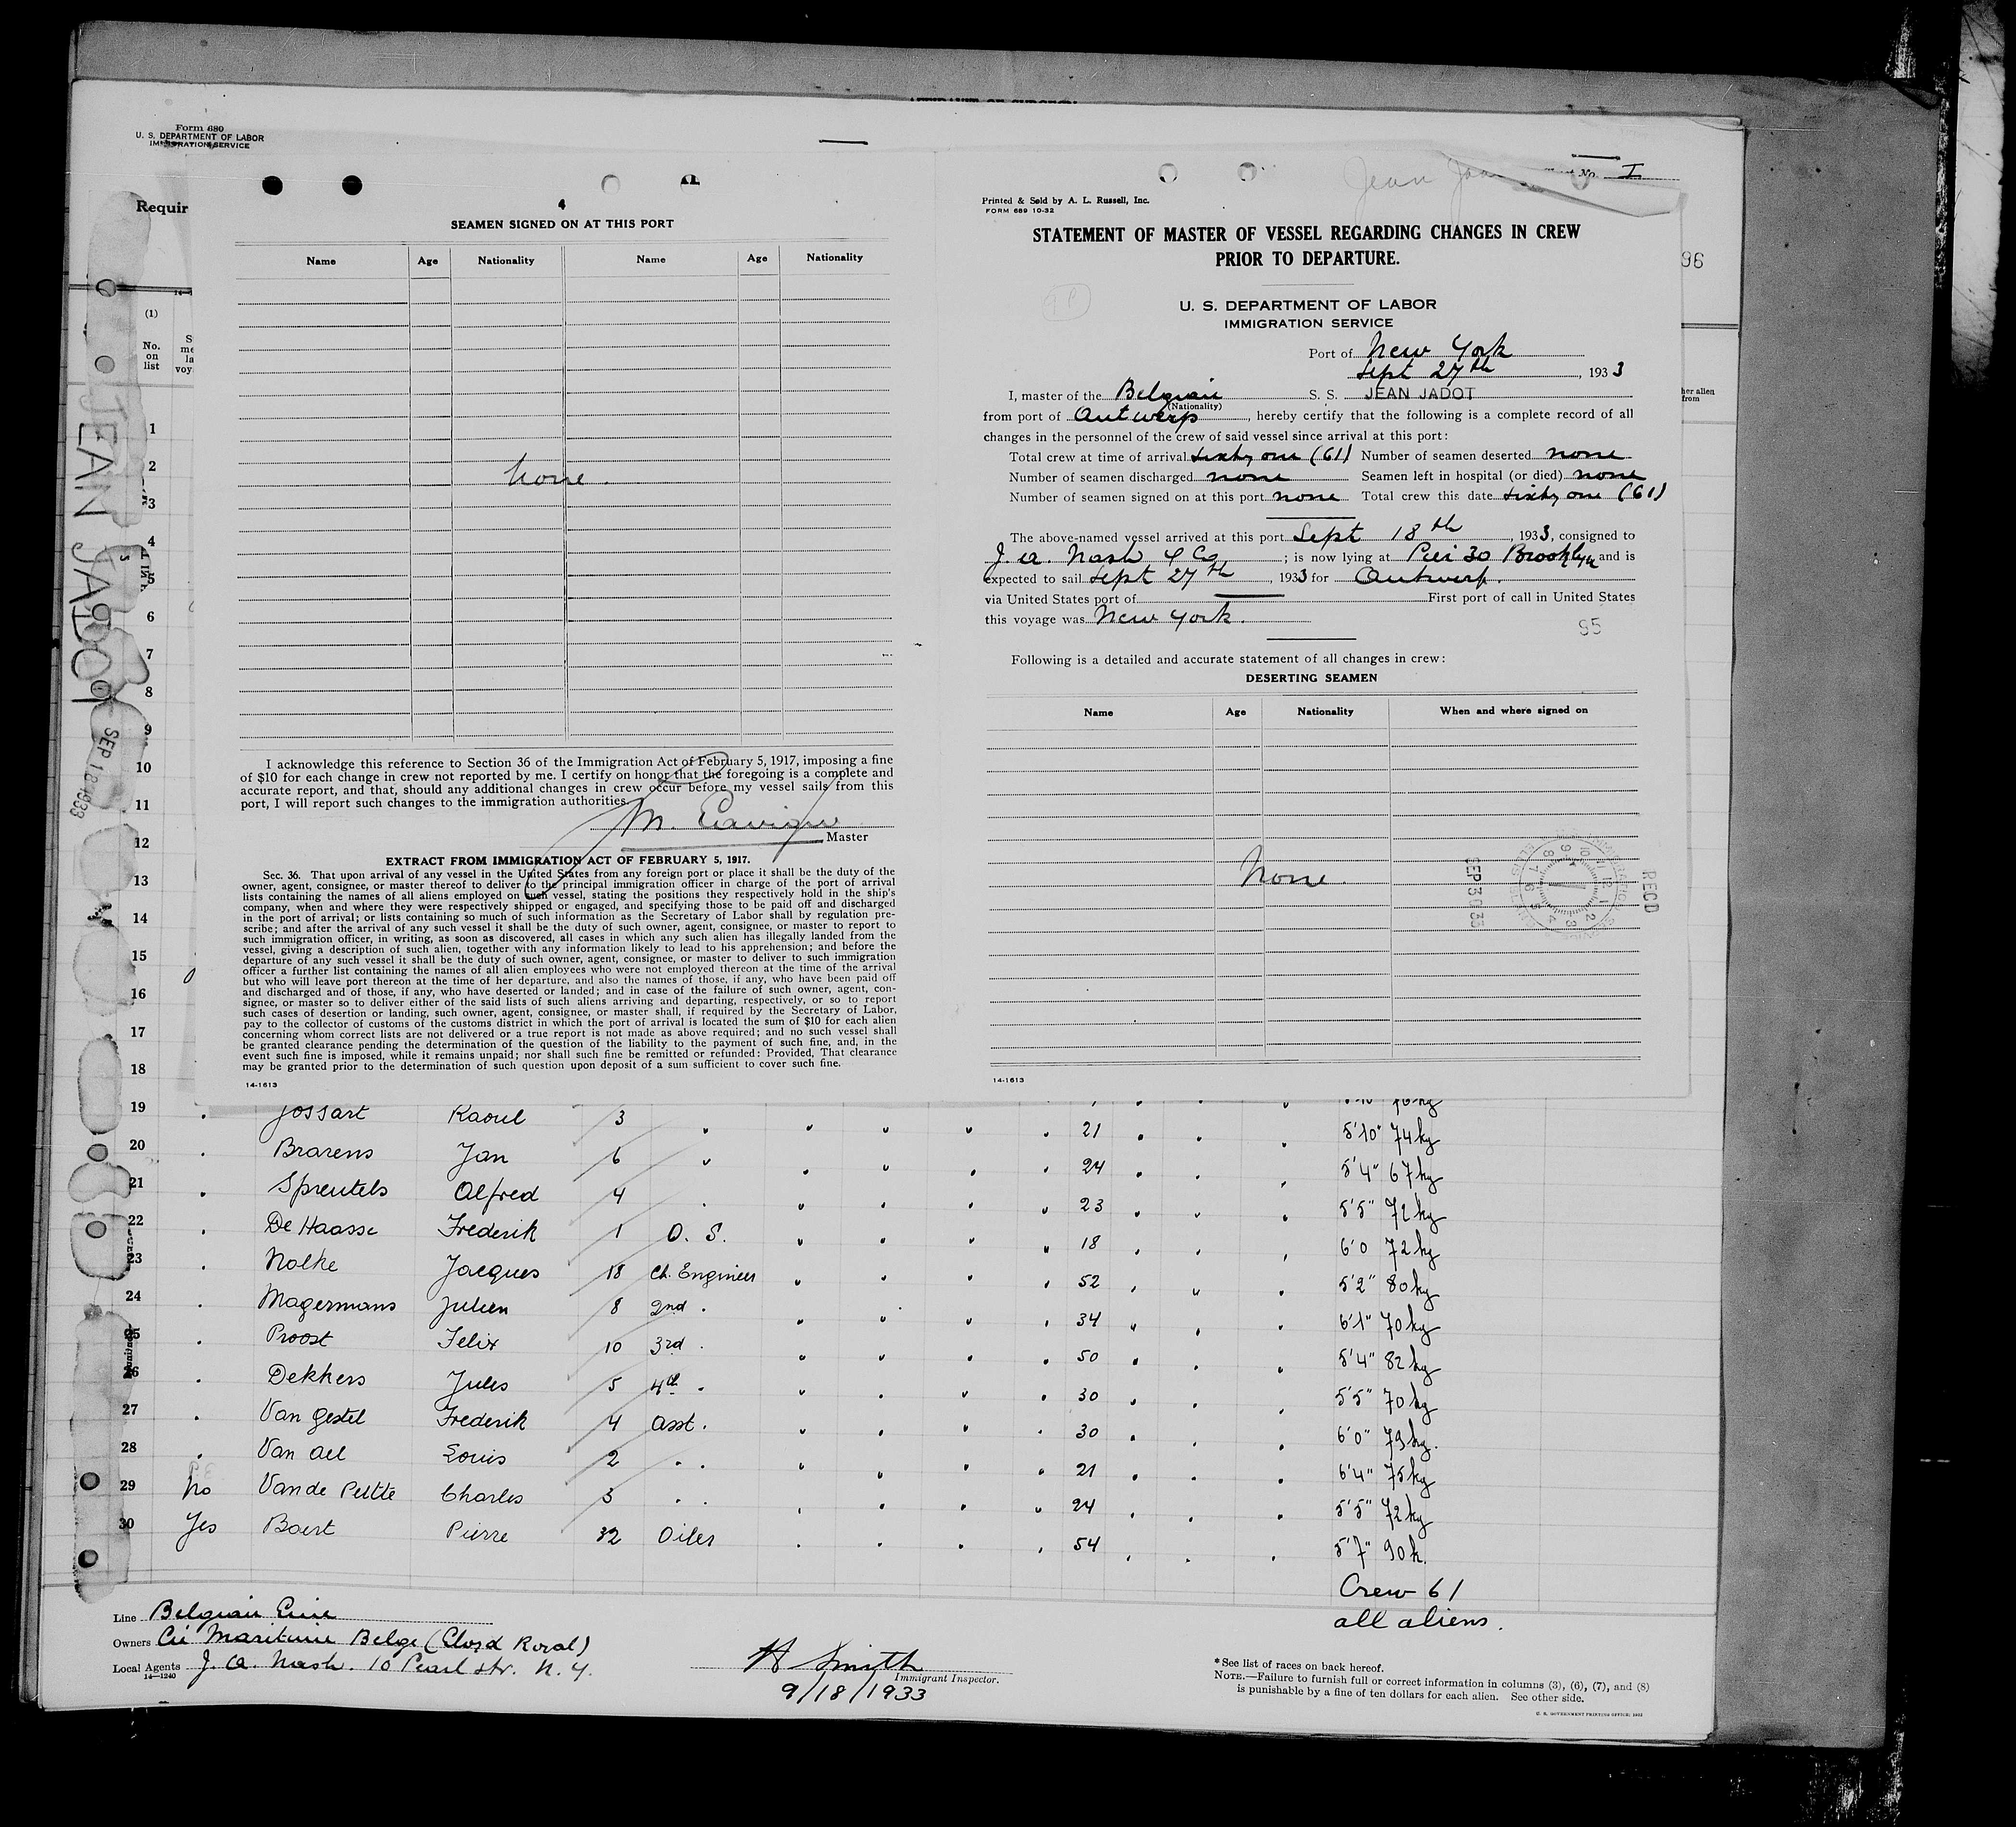 Form 680
U. S. DEPARTMENT OF LABOR
IMMIGRATION SERVICE
Requir
(1)
No.
on
list
JEAN JADOT
SEP 18 1933
4
SEAMEN SIGNED ON AT THIS PORT
Name Age Nationality Name Age Nationality
None.
I acknowledge this reference to Section 36 of the Immigration Act of February 5, 1917, imposing a fine
of $10 for each change in crew not reported by me. I certify on honor that the foregoing is a complete and
accurate report, and that, should any additional changes in crew occur before my vessel sails from this
port, I will report such changes to the immigration authorities.
M.
Master
EXTRACT FROM IMMIGRATION ACT OF FEBRUARY 5, 1917.
Sec. 36. That upon arrival of any vessel in the United States from any foreign port or place it shall be the duty of the
owner, agent, consignee, or master thereof to deliver to the principal immigration officer in charge of the port of arrival
lists containing the names of all aliens employed on such vessel, stating the positions they respectively hold in the ship's
company, when and where they were respectively shipped or engaged, and specifying those to be paid off and discharged
in the port of arrival; or lists containing so much of such information as the Secretary of Labor shall by regulation pre-
scribe; and after the arrival of any such vessel it shall be the duty of such owner, agent, consignee, or master to report to
such immigration officer, in writing, as soon as discovered, all cases in which any such alien has illegally landed from the
vessel, giving a description of such alien, together with any information likely to lead to his apprehension; and before the
departure of any such vessel it shall be the duty of such owner, agent, consignee, or master to deliver to such immigration
officer a further list containing the names of all alien employees who were not employed thereon at the time of the arrival
but who will leave port thereon at the time of her departure, and also the names of those, if any, who have been paid off
and discharged and of those, if any, who have deserted or landed; and in case of the failure of such owner, agent, con-
signee, or master so to deliver either of the said lists of such aliens arriving and departing, respectively, or so to report
such cases of desertion or landing, such owner, agent, consignee, or master shall, if required by the Secretary of Labor,
pay to the collector of customs of the customs district in which the port of arrival is located the sum of $10 for each alien
concerning whom correct lists are not delivered or a true report is not made as above required; and no such vessel shall
be granted clearance pending the determination of the question of the liability to the payment of such fine, and, in the
event such fine is imposed, while it remains unpaid; nor shall such fine be remitted or refunded: Provided, That clearance
may be granted prior to the determination of such question upon deposit of a sum sufficient to cover such fine.
14-1613
Jean
No. I
Printed & Sold by A. L. Russell, Inc.
FORM 689 10-32
STATEMENT OF MASTER OF VESSEL REGARDING CHANGES IN CREW
PRIOR TO DEPARTURE.
96
U. S. DEPARTMENT OF LABOR
IMMIGRATION SERVICE
Port of New York
Sept 27th, 1933
I, master of the Belgian S. S. JEAN JADOT
(Nationality)
from port of Antwerp, hereby certify that the following is a complete record of all
changes in the personnel of the crew of said vessel since arrival at this port:
Total crew at time of arrival sixty one (61) Number of seamen deserted none
Number of seamen discharged none Seamen left in hospital (or died) none
Number of seamen signed on at this port none Total crew this date sixty one (61)
The above-named vessel arrived at this port Sept 18th, 1933, consigned to
J. A. Nash & Co; is now lying at Pier 30 Brooklyn and is
expected to sail Sept 27th, 1933 for Antwerp.
via United States port of First port of call in United States
this voyage was New York.
95
Following is a detailed and accurate statement of all changes in crew:
DESERTING SEAMEN
Name Age Nationality When and where signed on
None.
SEP 30 33
RECD
14-1613
her alien
from
1
2
3
4
5
6
7
8
9
10
11
12
13
14
15
16
17
18
19 Jossart Raoul 3 21 5'10" 74kg
20 Brarens Jan 6 24 5'4" 67kg
21 Sprentels Alfred 4 23 5'5" 72kg
22 De Haasse Frederik 1 O. S. 18 6'0 72kg
23 Nolke Jacques 18 Ch. Engineer 52 5'2" 80kg
24 Magermans Julien 8 2nd . 34 6'1" 70kg
25 Proost Felix 10 3rd . 50 5'4" 82kg
26 Dekkers Jules 5 4th . 30 5'5" 70kg
27 Van Gestel Frederik 4 asst. 30 6'0" 79kg.
28 Van Ael Louis 2 21 6'4" 75kg
29 No Van de Pettte Charles 3 24 5'5" 72kg
30 Yes Boert Pierre 32 Oiler 54 5'7" 90k.
Crew 61
all aliens.
Line Belgian Line
Owners Cie Maritime Belge (Lloyd Royal)
Local Agents J. A. Nash. 10 Pearl str. N. Y.
14-1240
H Smith
Immigrant Inspector.
9/18/1933
*See list of races on back hereof.
NOTE.—Failure to furnish full or correct information in columns (3), (6), (7), and (8)
is punishable by a fine of ten dollars for each alien. See other side.
U. S. GOVERNMENT PRINTING OFFICE: 1932